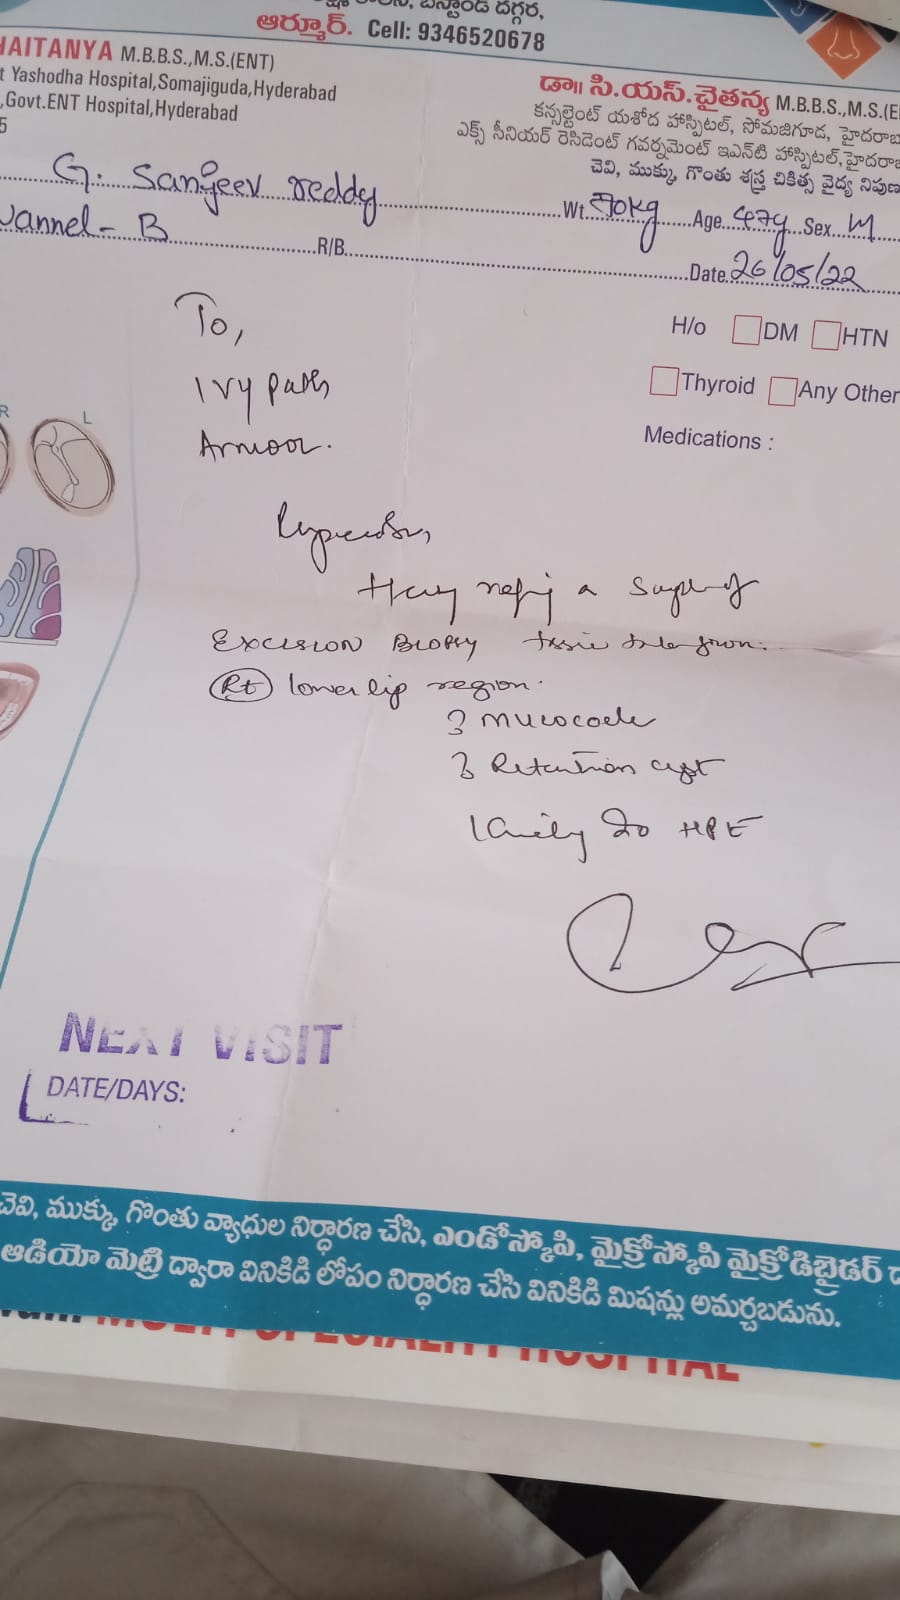 బస్టాండ్ దగ్గర,
ఆర్మూర్. Cell: 9346520678
HAITANYA M.B.B.S.,M.S.(ENT)
t Yashodha Hospital,Somajiguda,Hyderabad
,Govt.ENT Hospital,Hyderabad
5
డా॥ సి.యస్.చైతన్య M.B.B.S.,M.S.(E
కన్సల్టెంట్ యశోద హాస్పిటల్, సోమజిగూడ, హైదరాబ
ఎక్స్ సీనియర్ రెసిడెంట్ గవర్నమెంట్ ఇఎన్‌టి హాస్పిటల్,హైదరాబ
చెవి, ముక్కు, గొంతు శస్త్ర చికిత్స వైద్య నిపుణ
G. Sanjeev reddy Wt. 70kg Age 47y Sex M
vannel-B R/B Date 26/05/22
H/o DM HTN
Thyroid Any Other
Medications :
R L
To,
Ivy path
Armoor.
a
Excision Biopsy
Rt lower lip region.
? mucocoele
? Retention cyst
Kindly do HPE
NEXT VISIT
DATE/DAYS:
చెవి, ముక్కు, గొంతు వ్యాధుల నిర్ధారణ చేసి, ఎండోస్కోపి, మైక్రోస్కోపి మైక్రోడిబ్రైడర్ ద
ఆడియో మెట్రి ద్వారా వినికిడి లోపం నిర్ధారణ చేసి వినికిడి మిషన్లు అమర్చబడును.
MULTI SPECIALITY HOSPITAL